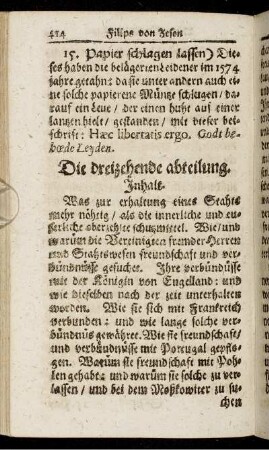 414 Filips von Zesen
15. Papier schlagen lassen) Die-
ses haben die belägerten Leidener im 1574
jahre getahn: da sie unter andern auch ei-
ne solche papierene Müntze schlugen/ da-
rauf ein Leue/ der einen huht auf einer
lantzen hielt/ gestanden/ mit dieser bei-
schrift: Hæc libertatis ergo. Godt be-
hœde Leyden.
Die dreizehende abteilung.
Inhalt.
Was zur erhaltung eines Stahts
mehr nöhtig/ als die innerliche und eu-
serliche oberzehlte schutzmittel. Wie/ und
warüm die Vereinigten fremder Herren
und Stahtswesen freundschaft und ver-
bündnüsse gesuchet. Ihre verbündnüsse
mit der Königin von Engelland: und
wie dieselben nach der zeit unterhalten
worden. Wie sie sich mit Frankreich
verbunden: und wie lange solche ver-
bündnüs gewähret. Wie sie freundschaft/
und verbündnüsse mit Portugal gepflo-
gen. Warüm sie freundschaft mit Poh-
len gehabt: und warüm sie solche zu ver-
lassen/ und bei dem Moßkowiter zu su-
chen